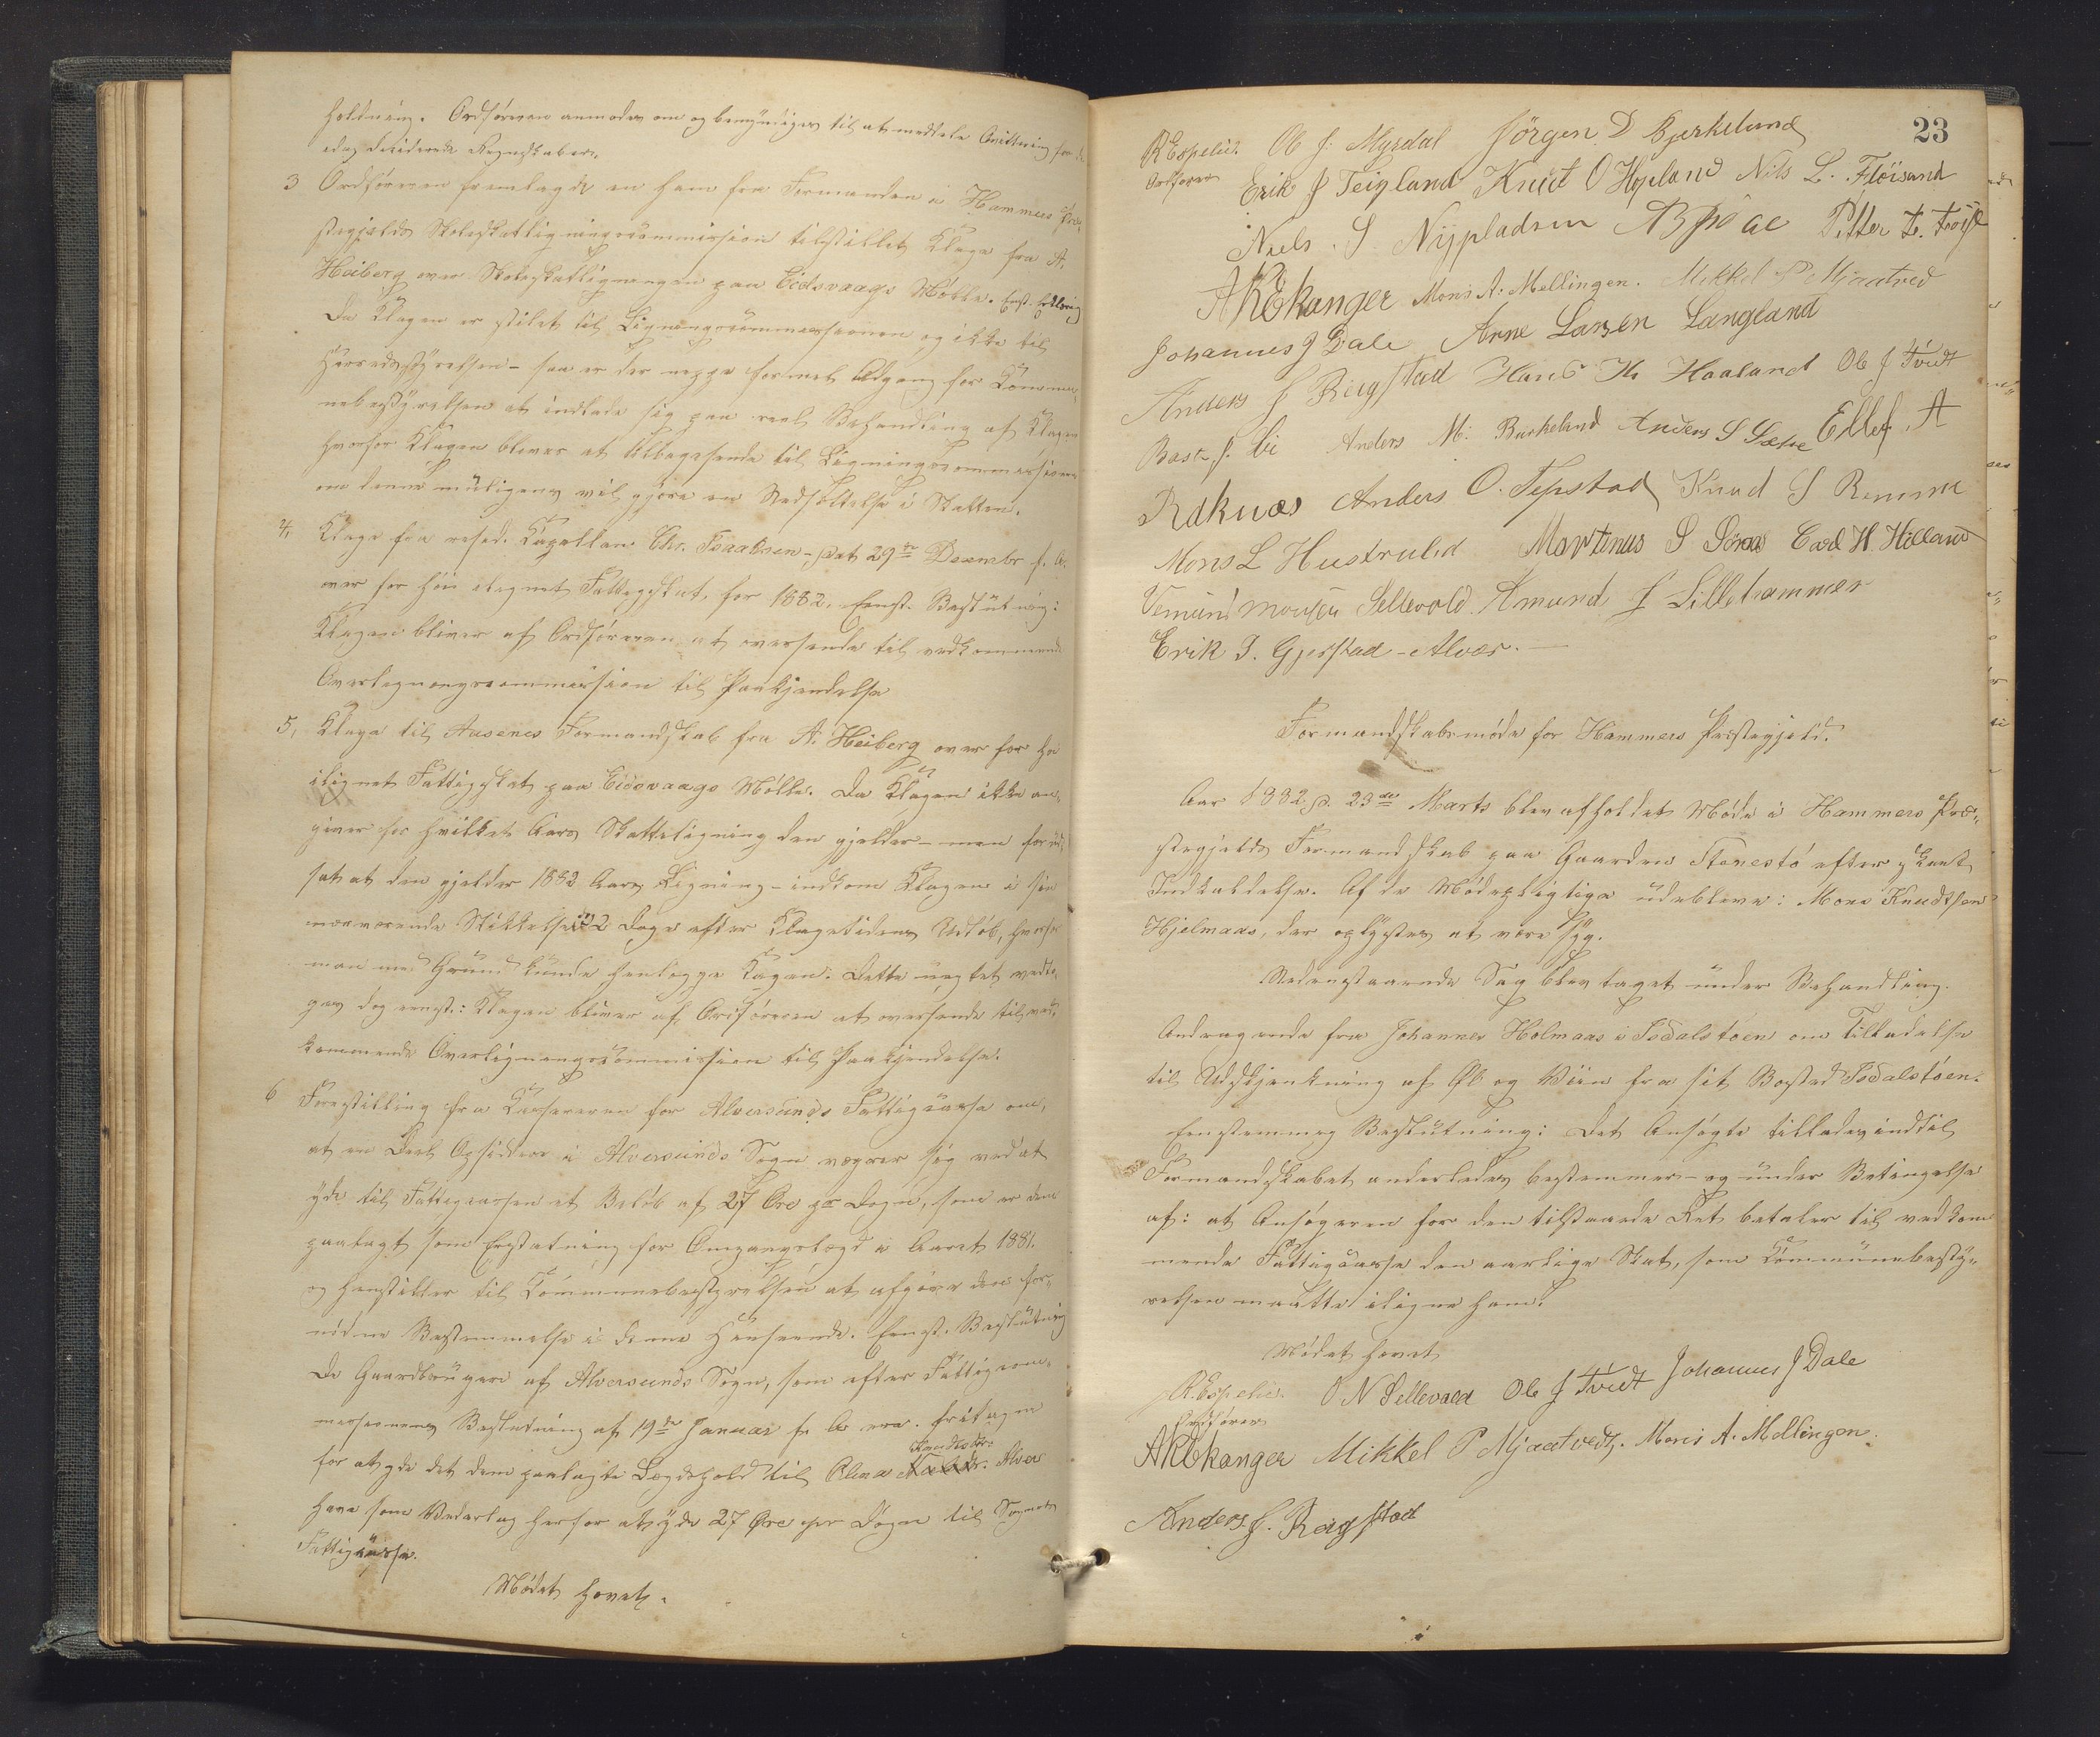 holdning. Ordføreren anmodes om og bemyndiges til at meddele Qvittering for de
idag deciderede Regnskaber.
3 Ordføreren fremlagde en ham fra Formanden i Hammers Præ-
stegjelds Skoleskatligningscommission tilstillet Klage fra A.
Heiberg over Skoleskatligningen paa Eidsvaags Mølle. Enst. Erklæring
Da Klagen er stilet til Ligningscommissionen og ikke til
Herredsstyrelsen – saa er der neppe formel Adgang for Kommu-
nebestyrelsen at indlade sig paa reel Behandling af Klagen
hvorfor Klagen bliver at tilbagesende til Ligningscommissionen
om denne muligens vil gjøre en Nedsættelse i Skatten.
4, Klage fra resid. Kapellan Chr. Isaaksen – dat 29de Decembr f. A.
over for høi ilignet Fattigskat for 1882. Enst. Beslutning:
Klagen bliver af Ordføreren at oversende til vedkommende
Overligningscommission til Paakjendelse
5, Klage til Aasenes Formandskab fra A. Heiberg over for høi
ilignet Fattigskat paa Eidsvaags Mølle. Da Klagen ikke an-
giver for hvilket Aars Skatteligning den gjelder – men forud-
sat at den gjelder 1882 Aars Ligning – indkom Klagen i sin
nærværende Skikkelse 2 Dage efter Klagetidens Udløb, hvorfor
man med Grund kunde henlægge Kagen. Dette uagtet vedto-
ges dog eenst.: Klagen bliver af Ordføreren at oversende til ved-
kommende Overligningscommission til Paakjendelse.
6 Forestilling fra Kassereren for Alversunds Fattigcasse om,
at en Deel Opsiddere i Alversunds Sogn vegrer sig ved at
yde til Fattigcassen et Beløb af 27 Øre pr Døgn, som er dem
paalagt som Erstatning for Omgangslægd i Aaret 1881.
og henstiller til Kommunebestyrelsen at afgive den for-
nødne Bestemmelse i denne Henseende. Eenst. Beslutning
De Gaardbrugere af Alversunds Sogn, som efter Fattigcom-
missionens Beslutning af 19de Januar f. A. ere fritagne
for at yde det dem paalagte Lægdshold til Olina Knudsdtr. Alver
have som Vederlag herfor at yde 27 Øre per Døgn til Sognets
Fattigcasse.
Mødet hævet.
23
R Espelid. Ole J. Myrdal Jörgen D Bjerkelund
Ordfører
Erik J Teigland Knut O Hopland Nils L. Flöisand
Niels. S. Nyjpladsen Petter
A K Ekanger Mons A. Mellingen. Mikkel P Mjaatved
Johannes J Dale Arne Larsen Langeland
Anders J Reigstad Hans K Haaland Ole J Tvedt
Anders M. Burkeland Anders S Sætre Ellef A
Rdknæs Anders O. Tepstad Knud S Remme
Mons L Hustrulid Martinus S Soraas Carl H. Hilland
Vemund Monsen Sellevold. Amund J Lillehammer
Erik I. Gjerstad – Alvær. –
Formandskabsmøde for Hammers Præstegjeld.
Aar 1882. d. 23de Marts blev afholdet Møde i Hammers Præ-
stegjelds Formandskab paa Gaarden Stenestø efter skeet
Indkaldelse. Af de Mødepligtige udebleve: Mons Knudtsen
Hjelmaas, der oplystes at være syg.
Nedenstaaende Sag blev taget under Behandling.
Andragende fra Johannes Holmaas i Isdalstøen om Tilladelse
til Udskjenkning af Øl og Viin fra sit Bosted Isdalstøen.
Eenstemmig Beslutning: Det Ansøgte tillades indtil
Formandskabet anderledes bestemmer – og under Betingelse
af: at Ansøgeren for den tilstaaede Ret betaler til vedkom-
mende Fattigcasse den aarlige Skat, som Kommunebesty-
relsen maatte iligne ham.
Mødet hævet
R. Espelid. O N Sellevold Ole J Tvedt Johannes J Dale
Ordfører
A K Ekanger Mikkel P Mjaatvedt. Mons A. Mellingen.
Anders J. Reigstad